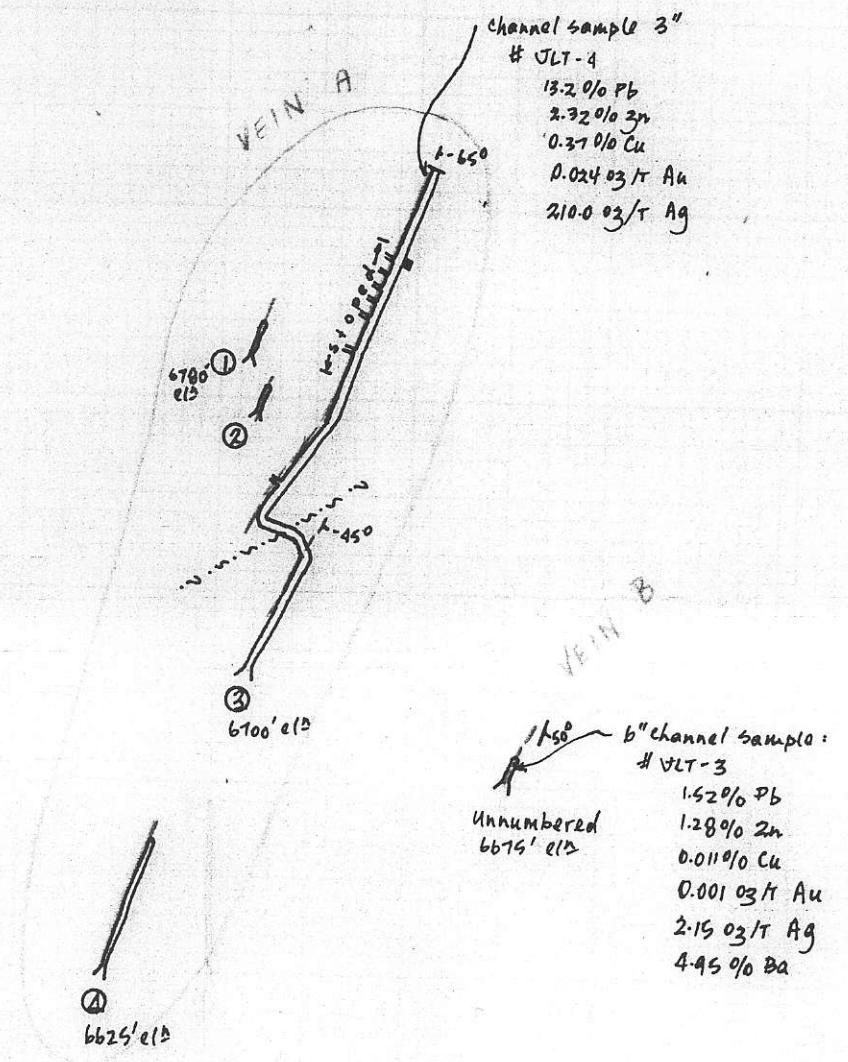 channel sample 3"
# JLT-4
13.2% Pb
2.32% Zn
0.37% Cu
0.024 oz/T Au
210.0 oz/T Ag
VEIN A
-65°
stoped
①
6780'
elⁿ
②
-45°
③
6700' elⁿ
VEIN B
50°
6" channel sample:
# JLT-3
1.52% Pb
1.28% Zn
0.011% Cu
0.001 oz/T Au
2.15 oz/T Ag
4.95% Ba
Unnumbered
6675' elⁿ
④
6625' elⁿ